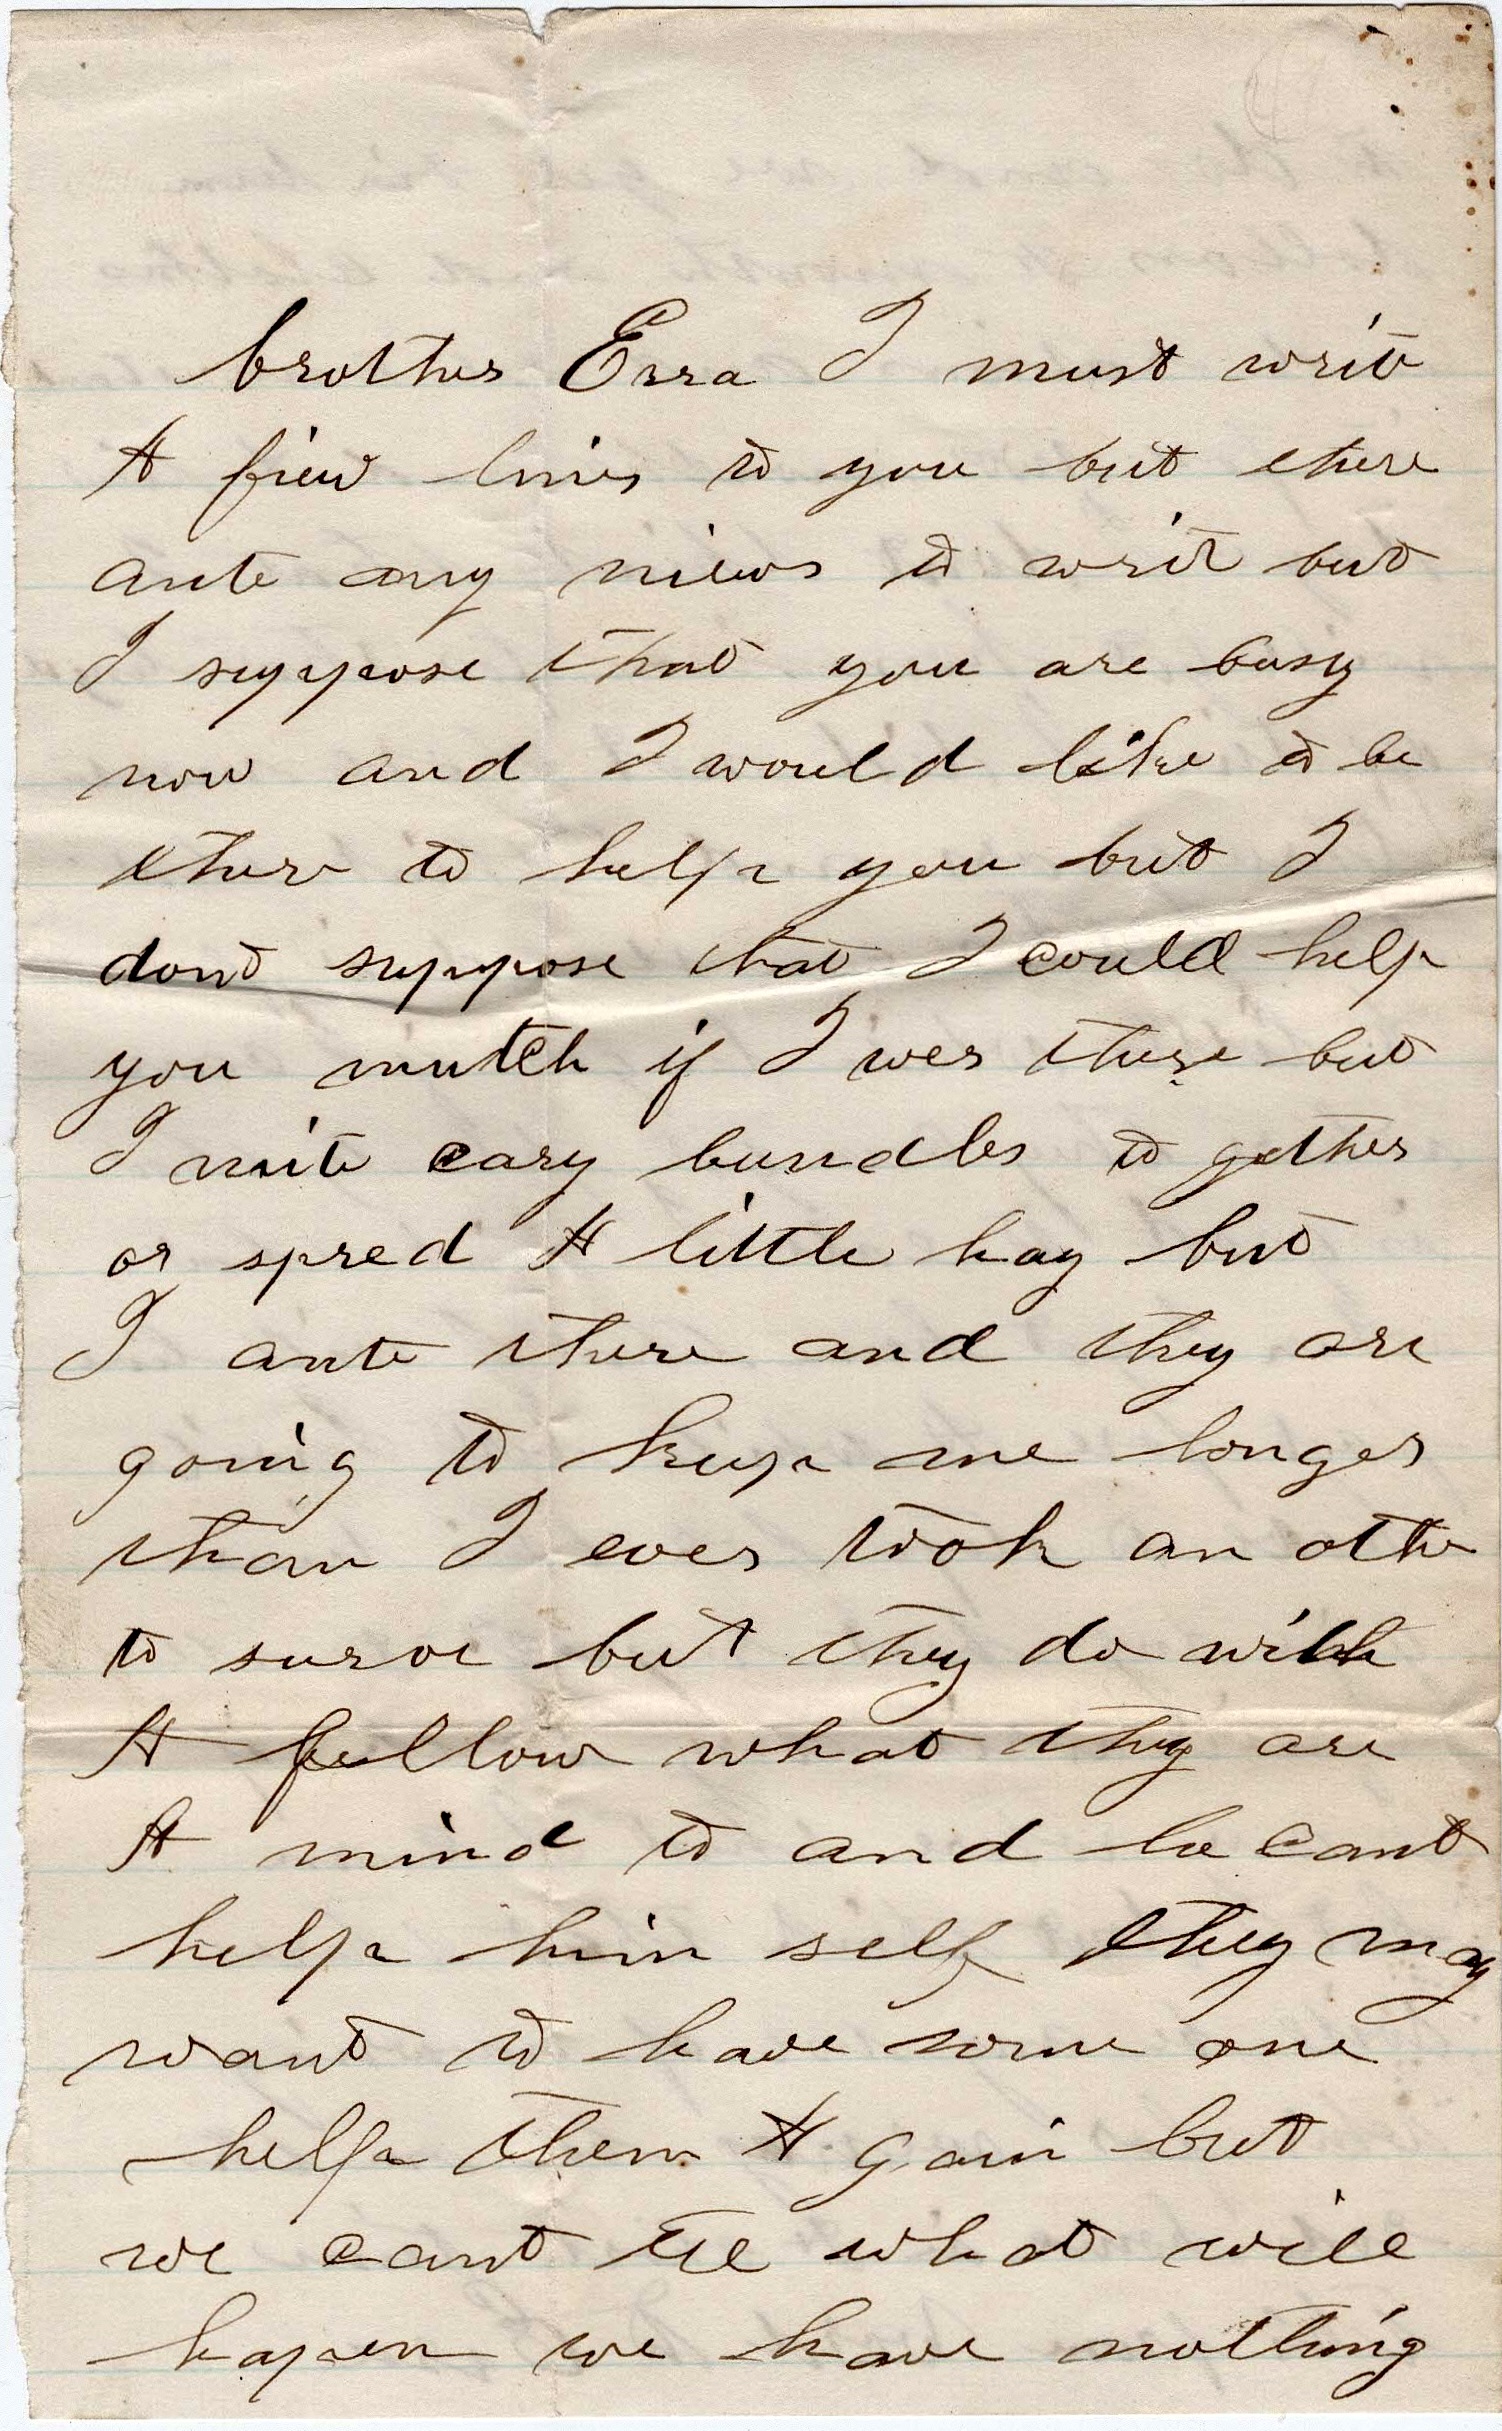 brother Ezra I must write
A fiew lines to you but there
ante any niews to write but
I suppose that you are busy
now and I would like to be
there to help you but I
dont suppose that I could help
you mutch if I wer there but
I mite cary bundles to gether
or spred A little hay but
I ante there and they are
going to keep me longer
than I ever took an othe
to surve but they do with
A fellow what they are
A mind to and he cant
help him self they may
want to have some one
help them A gain but
we cant tell what will
hapen we have nothing